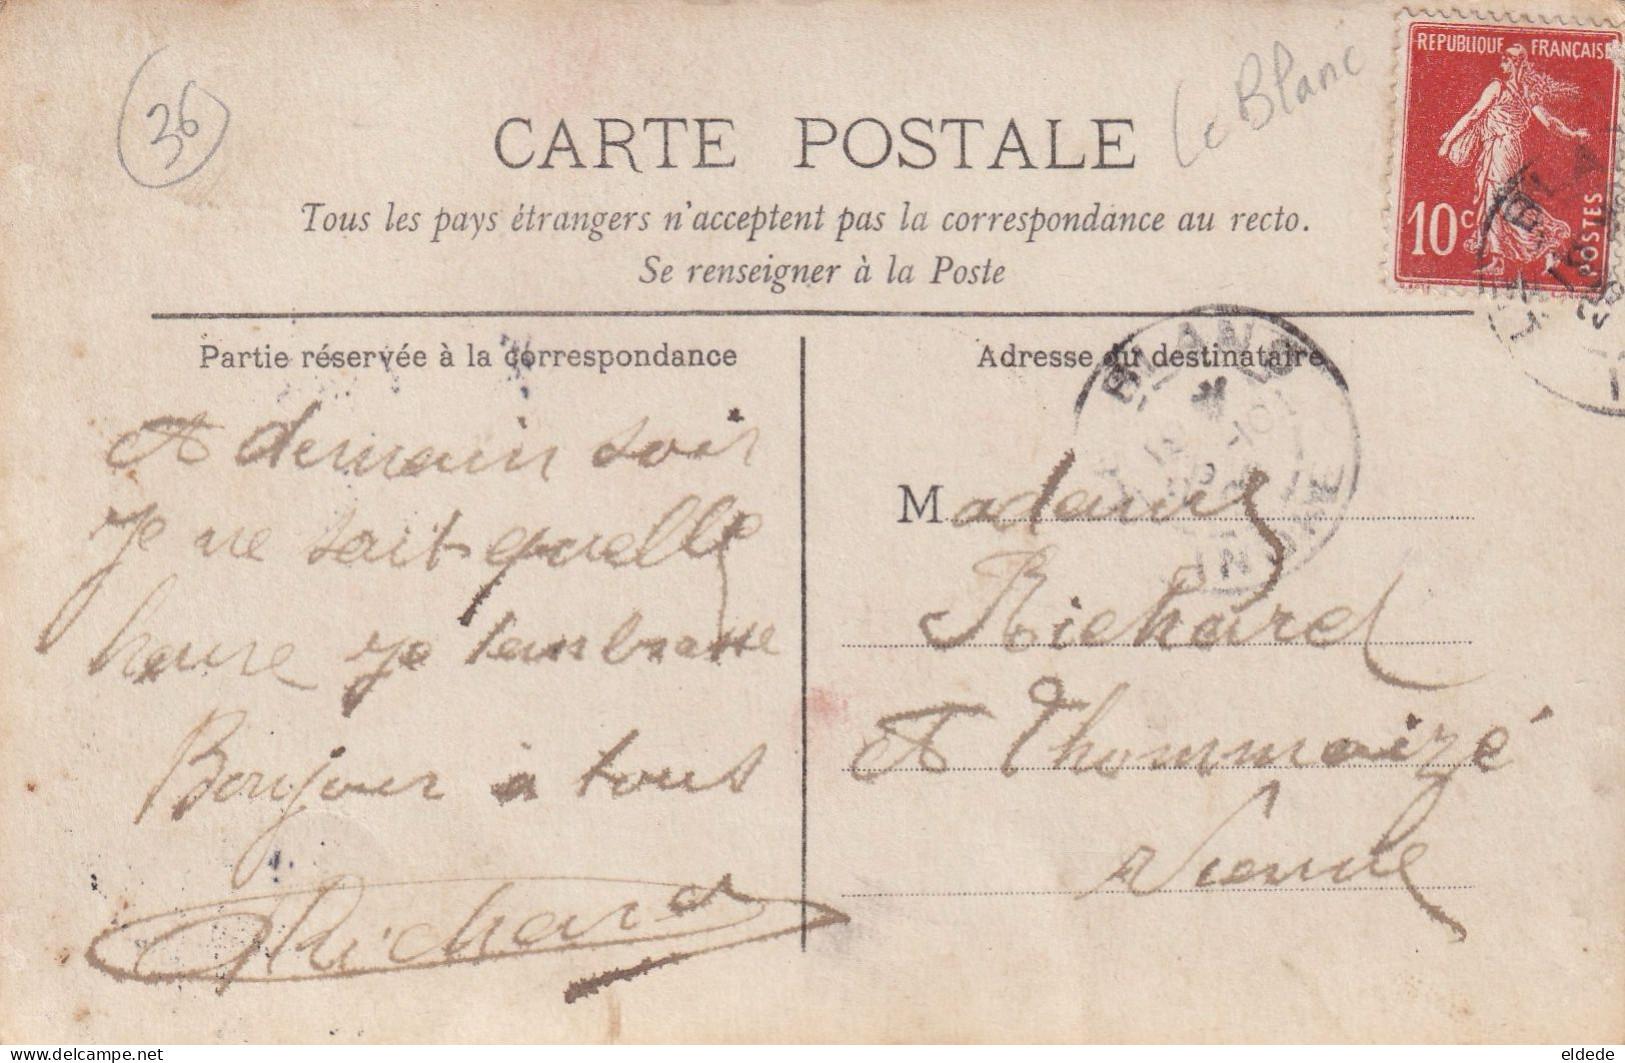 36
Le Blanc
REPUBLIQUE FRANÇAISE
10c
POSTES
CARTE POSTALE
Tous les pays étrangers n'acceptent pas la correspondance au recto.
Se renseigner à la Poste
Partie réservée à la correspondance
A demain soir
Je ne sait quelle
heure je tembrasse
Bonjour a tous
Richard
Adresse du destinataire
Madame
Richard
A Thommaizé
Vienne
LE BLANC
INDRE
eldede